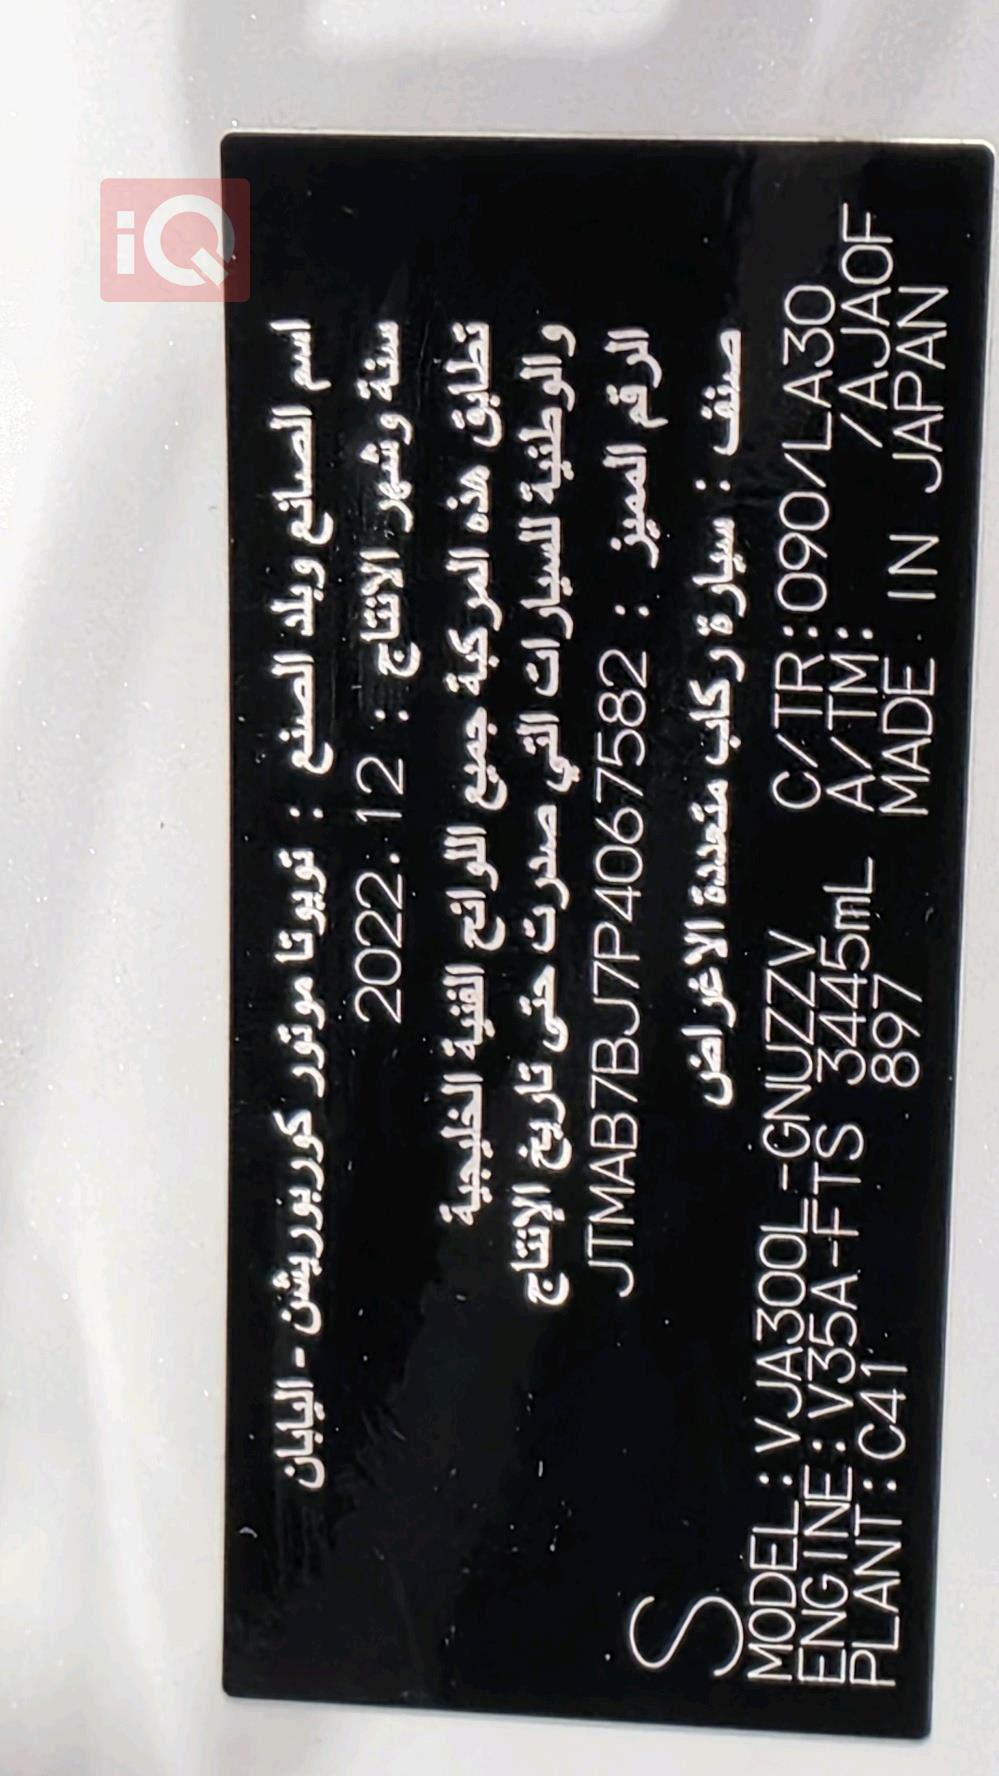 iQ
اسم الصانع وبلد الصنع : تويوتا موتور كوربوريشن - اليابان
سنة وشهر الانتاج : 2022.12
تطابق هذه المركبة جميع اللوائح الفنية الخليجية
والوطنية للسيارات التي صدرت حتى تاريخ الإنتاج
الرقم المميز : JTMAB7BJ7P4067582
صنف : سيارة ركاب متعددة الاغراض
S
MODEL : VJA300L-GNUZZV C/TR:090/LA30
ENGINE: V35A-FTS 3445mL A/TM: /AJA0F
PLANT : C41 897 MADE IN JAPAN